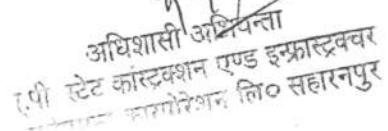 अधिशासी अभियन्ता
यू.पी स्टेट कांस्ट्रक्शन एण्ड इन्फ्रास्ट्रक्चर
कारपोरेशन लि० सहारनपुर